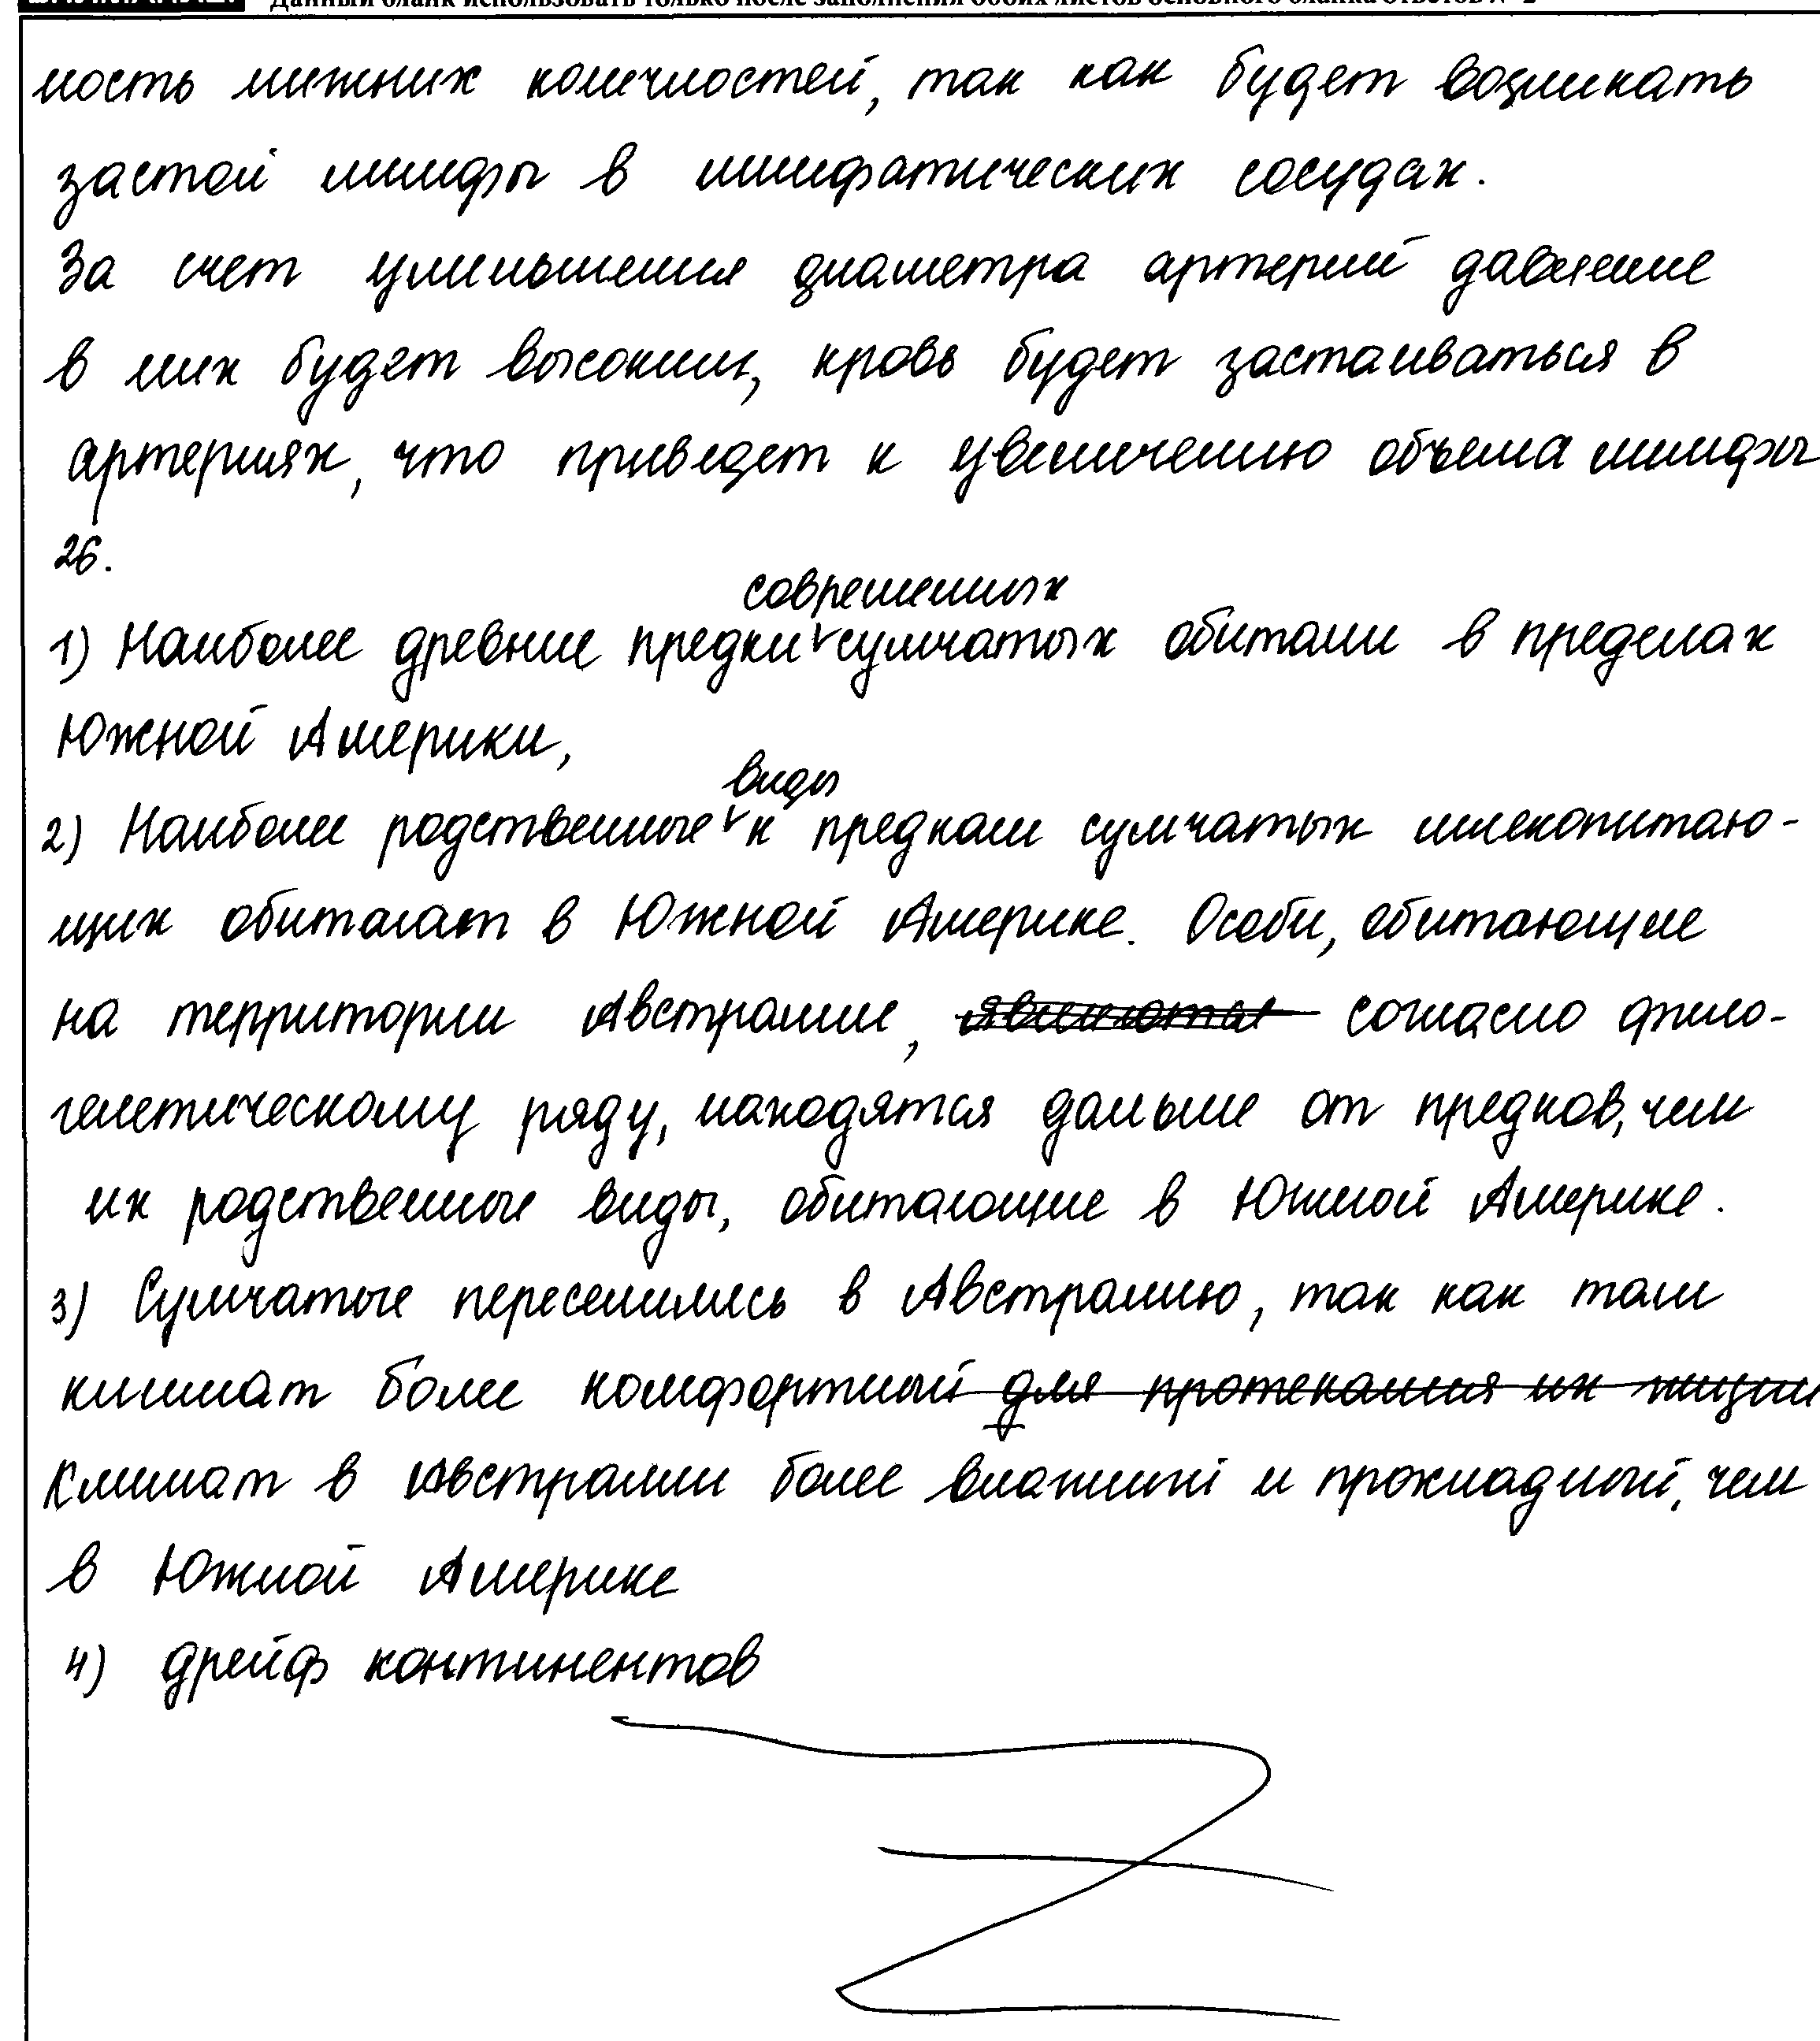 Данный бланк использовать только после заполнения обоих листов основного бланка ответов № 2
ность нижних конечностей, так как будет возникать
застой лимфы в лимфатических сосудах.
За счет уменьшения диаметра артерий давление
в них будет высоким, кровь будет застаиваться в
артериях, что приведет к увеличению объема лимфы
26.
современных
1) Наиболее древние предки сумчатых обитали в пределах
Южной Америки,
виды
2) Наиболее родственные к предкам сумчатых млекопитаю-
щих обитают в Южной Америке. Особи, обитающие
на территории Австралии, являются согласно фило-
генетическому ряду, находятся дальше от предков, чем
их родственные виды, обитающие в Южной Америке.
3) Сумчатые переселились в Австралию, так как там
климат более комфортный для протекания их жизни
Климат в Австралии более влажный и прохладный, чем
в Южной Америке
4) дрейф континентов